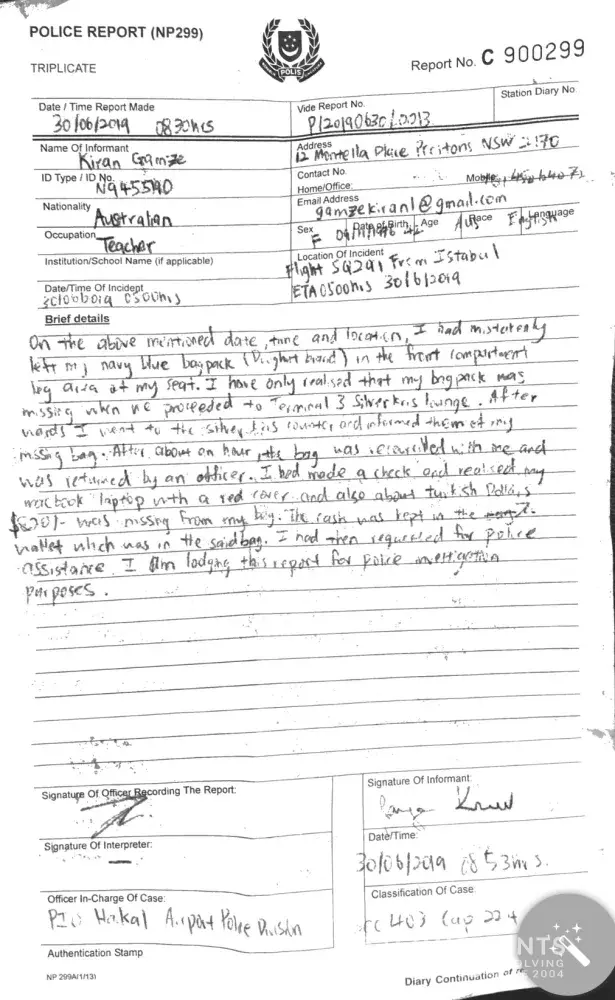 POLICE REPORT (NP299)
TRIPLICATE
POLIS
Report No. C 900299
Station Diary No.
Date / Time Report Made
30/06/2019 0830hrs
Vide Report No.
P/20190630/2213
Name Of Informant
Kiran Gamze
Address
12 Montella Place NSW 2170
ID Type / ID No.
Contact No.
Home/Office:
Mobile
Nationality
Australian
Email Address
gamzekiran1@gmail.com
Occupation
Teacher
Sex Date of Birth Age Race Language
F Aus English
Institution/School Name (if applicable)
Location Of Incident
Flight SQ291 From Istabul
ETA 0500hrs 30/6/2019
Date/Time Of Incident
30/06/2019 0500hrs
Brief details
On the above mentioned date, time and location, I had mistakenly
left my navy blue bagpack ( brand) in the front compartment
leg area at my seat. I have only realised that my bagpack was
missing when we proceeded to Terminal 3 Silverkris lounge. After
wards I went to the silverkris counter and informed them of my
missing bag. After about an hour, the bag was with me and
was returned by an officer. I had made a check and realised my
macbook laptop with a red cover and also about turkish Dollars
$820/- was missing from my bag. The cash was kept in the
wallet which was in the said bag. I had then requested for police
assistance. I am lodging this report for police investigation
purposes.
Signature Of Officer Recording The Report:
Signature Of Informant:
Signature Of Interpreter:
—
Date/Time:
30/06/2019 0853hrs.
Officer In-Charge Of Case:
Haikal Airport Police Division
Classification Of Case:
PC 403 Cap 224
Authentication Stamp
NP 299A(1/13)
Diary Continuation of
NTS
OLVING
2004